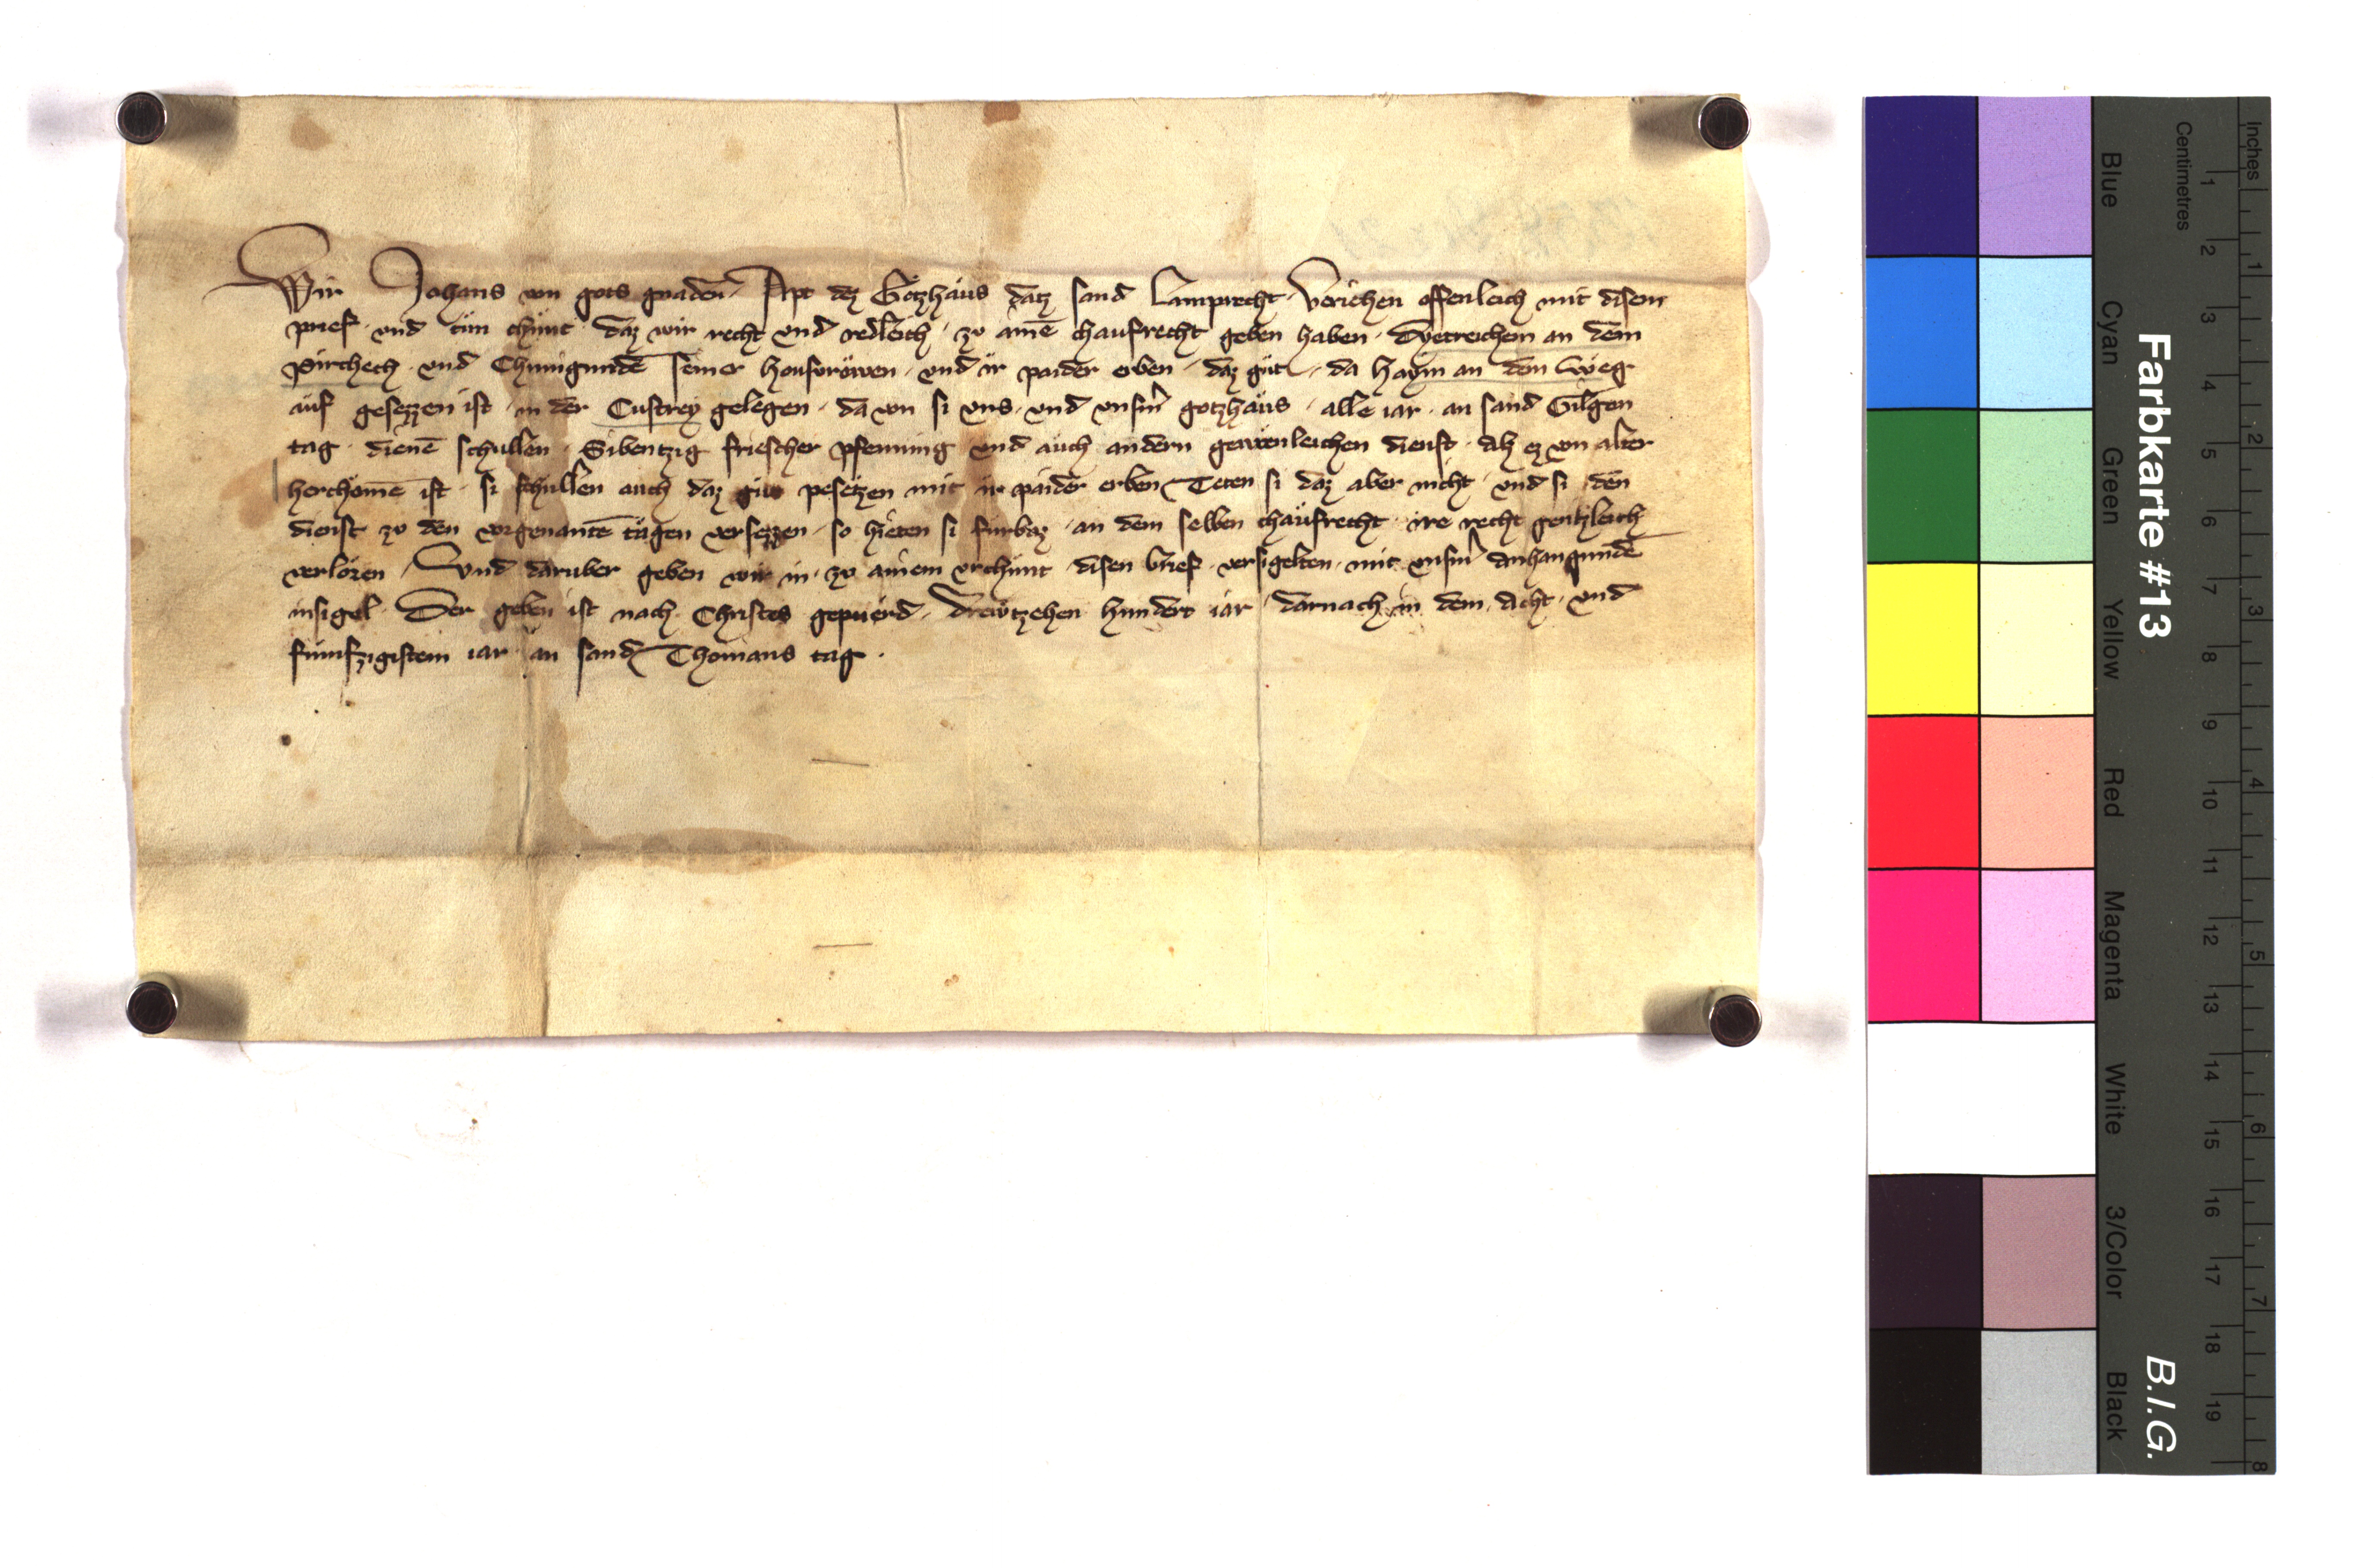 Wir Johans von gots gnaden Apt dez Gotzhaus datz sand Lamprecht veriehen offenleich mit disem
prief · vnd tun chunt · daz wir recht vnd redleich · zv aine̅ chaufrecht geben haben · Dyetreichem an dem
Pirchech · vnd Chunigunde̅ seiner housvrowen · vnd ir paider erben · daz gut · da Haym an dem Weg
auf gesezzen ist · in der Custrey gelegen · da von si vns · vnd vnserm gotzhaus · alle iar · an sand Gilgen
tag · diene̅ schullen · Sibentzig friescher phenning vnd auch andern gewonleichen dienst · alz ez von alter
herchome̅ ist · si schullen auch daz gut pesetzen mit ir paider erben Teten si daz aber nicht · vnd si den
dienst zv den vorgenante̅ tagen versezzen · so hieten si furbaz · an dem selben chaufrecht · ire recht gentzleich
verloren / Vnd daruber geben wir in · zv ainem vrchunt disen brief · versigelten · mit vnserm anhangunde̅
insigel · Der geben ist nach Christes gepuerd · drewtzehen hundert iar · darnach in dem · acht · vnd
fumfzigistem iar an sand Thomans tag ·
Farbkarte #13
B.I.G.
Blue Cyan Green Yellow Red Magenta White 3/Color Black
Centimetres 1 2 3 4 5 6 7 8 9 10 11 12 13 14 15 16 17 18 19
Inches 1 2 3 4 5 6 7 8